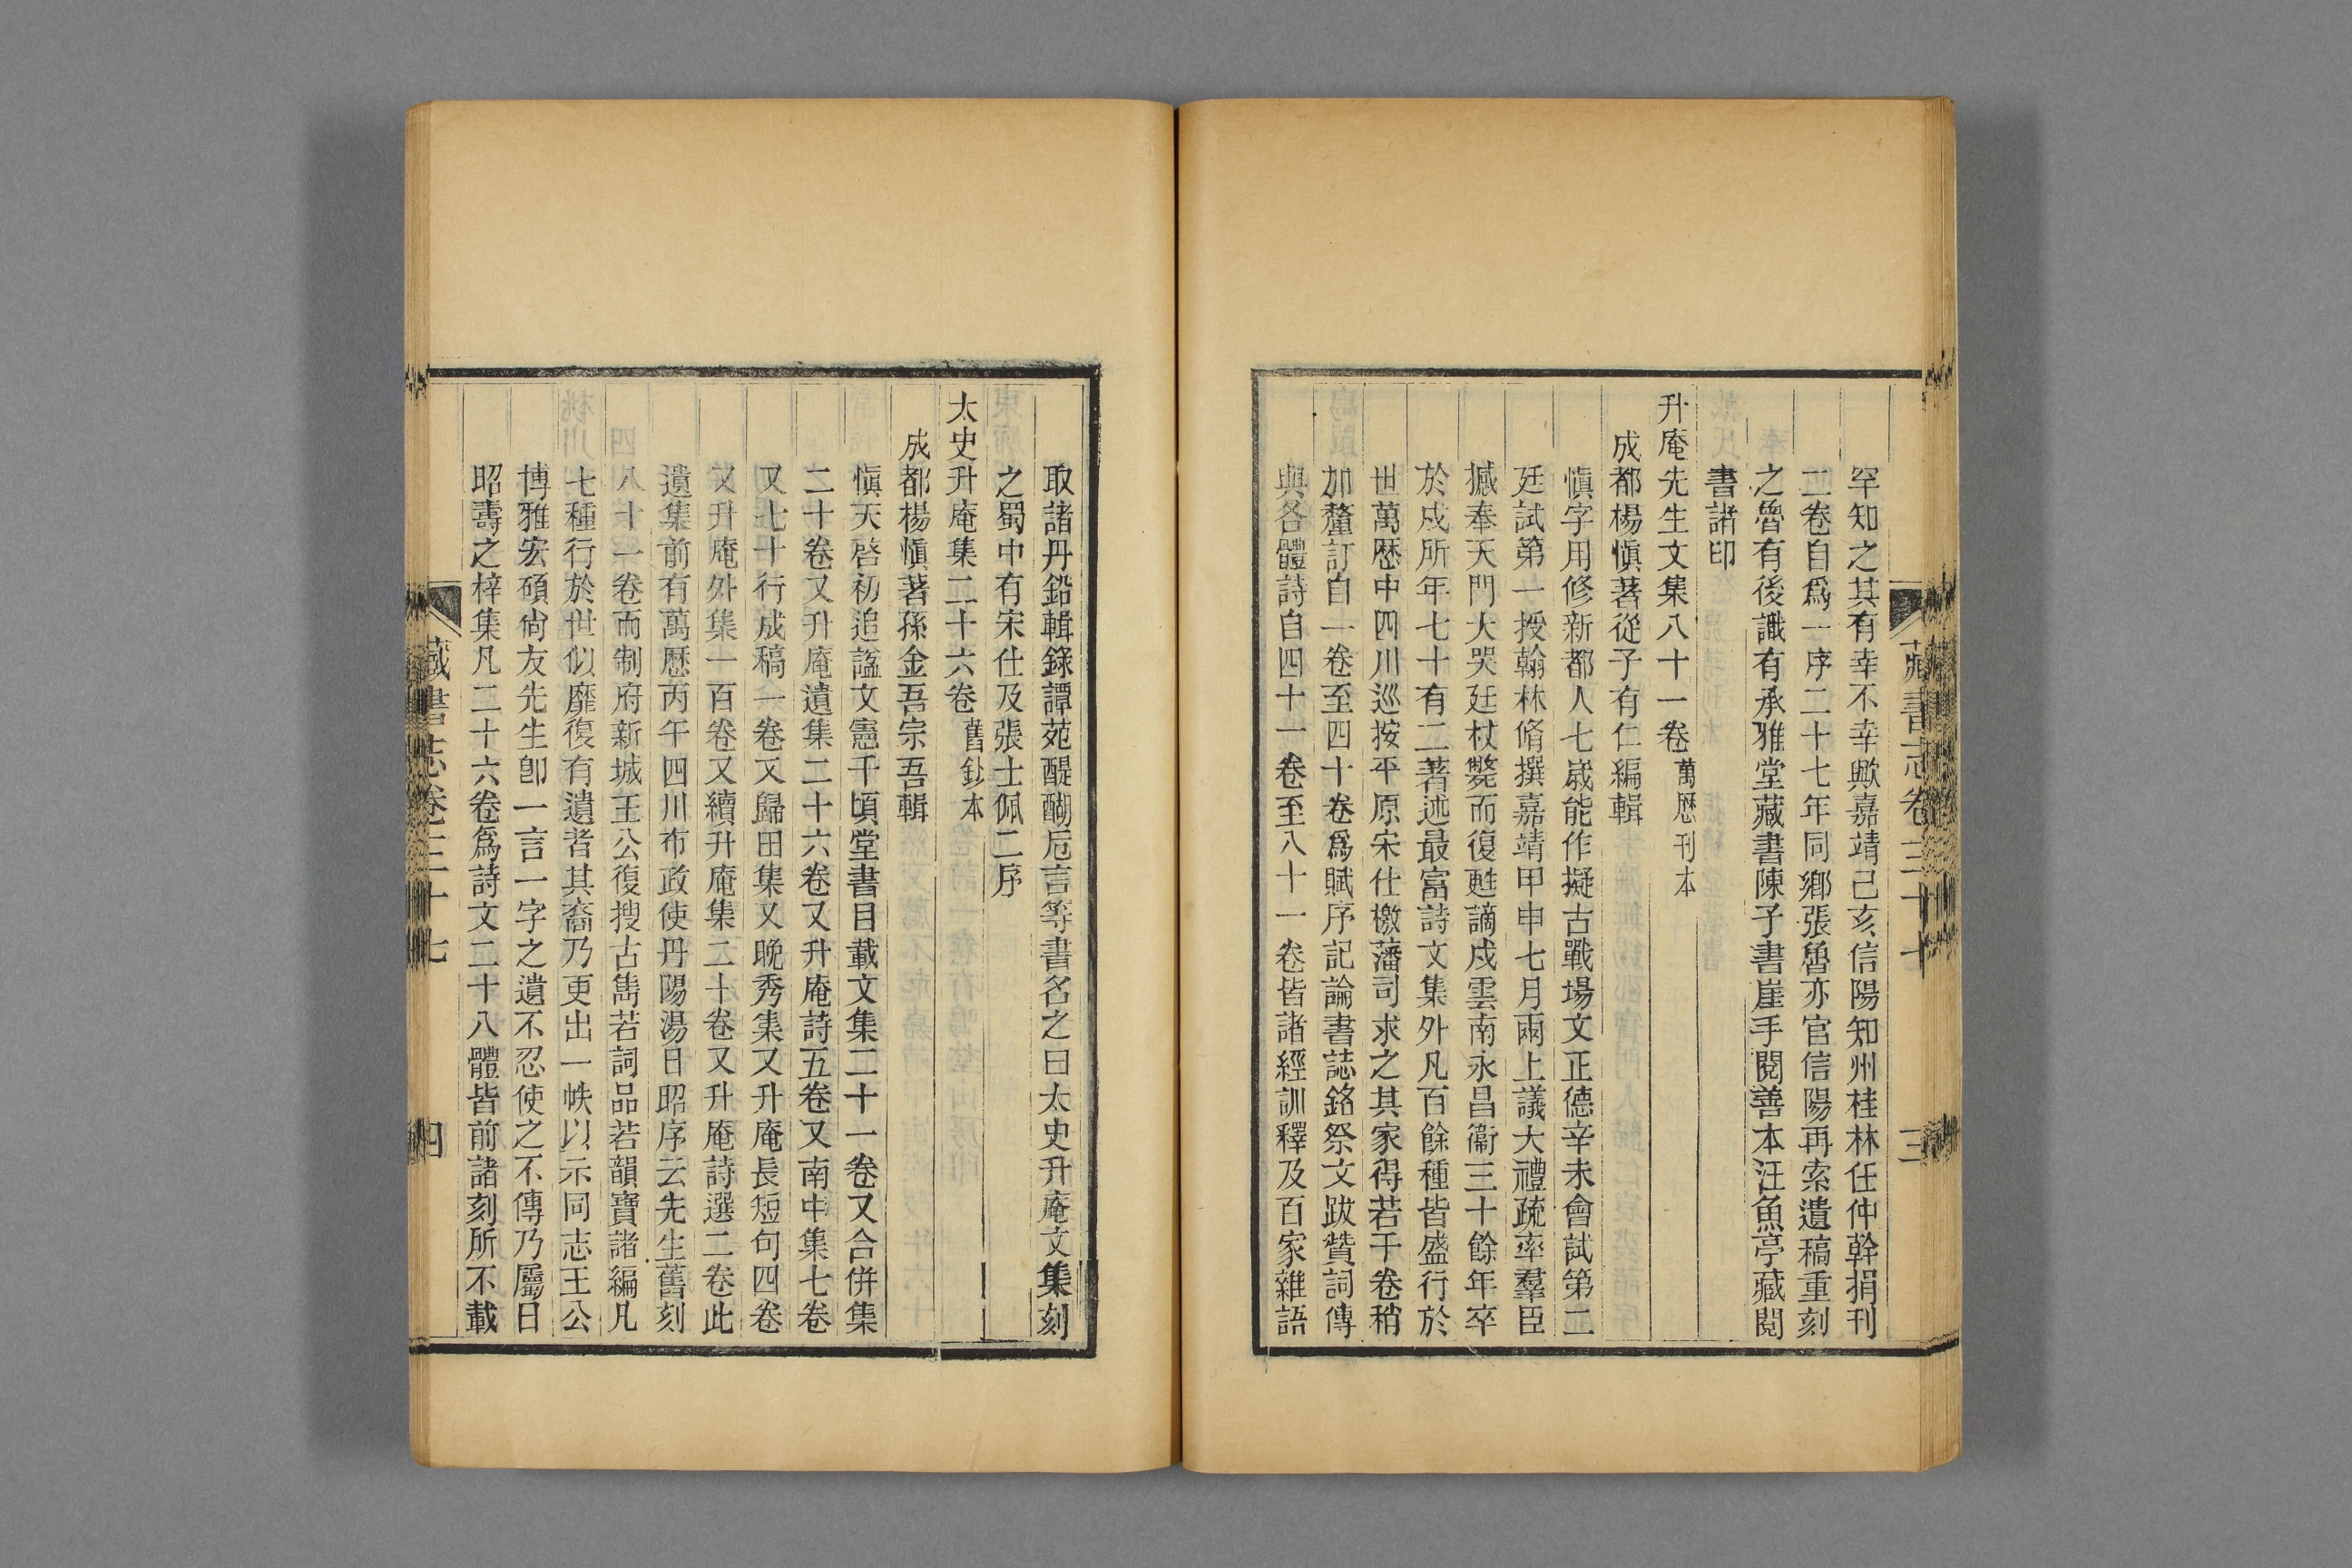 藏書志卷三十七
三
罕知之其有幸不幸歟嘉靖己亥信陽知州桂林任仲幹捐刊
二卷自爲一序二十七年同鄉張魯亦官信陽再索遺稿重刻
之魯有後識有承雅堂藏書陳子書崖手閱善本汪魚亭藏閱
書諸印
升庵先生文集八十一卷萬歷刊本
成都楊愼著從子有仁編輯
愼字用修新都人七歲能作擬古戰場文正德辛未會試第二
廷試第一授翰林脩撰嘉靖甲申七月兩上議大禮疏率羣臣
撼奉天門大哭廷杖斃而復甦謫戍雲南永昌衞三十餘年卒
於戍所年七十有二著述最富詩文集外凡百餘種皆盛行於
世萬歷中四川巡按平原宋仕檄藩司求之其家得若干卷稍
加釐訂自一卷至四十卷爲賦序記論書誌銘祭文跋贊詞傳
與各體詩自四十一卷至八十一卷皆諸經訓釋及百家雜語
取諸丹鉛輯錄譚苑醍醐卮言等書名之曰太史升庵文集刻
之蜀中有宋仕及張士佩二序
太史升庵集二十六卷舊鈔本
成都楊愼著孫金吾宗吾輯
愼天啓初追謚文憲千頃堂書目載文集二十一卷又合併集
二十卷又升庵遺集二十六卷又升庵詩五卷又南中集七卷
又七十行戍稿一卷又歸田集又晚秀集又升庵長短句四卷
又升庵外集一百卷又續升庵集二十卷又升庵詩選二卷此
遺集前有萬歷丙午四川布政使丹陽湯日昭序云先生舊刻
八十一卷而制府新城王公復搜古雋若詞品若韻寶諸編凡
七種行於世似靡復有遺者其裔乃更出一帙以示同志王公
博雅宏碩尙友先生卽一言一字之遺不忍使之不傳乃屬日
昭壽之梓集凡二十六卷爲詩文二十八體皆前諸刻所不載
藏書志卷三十七
四